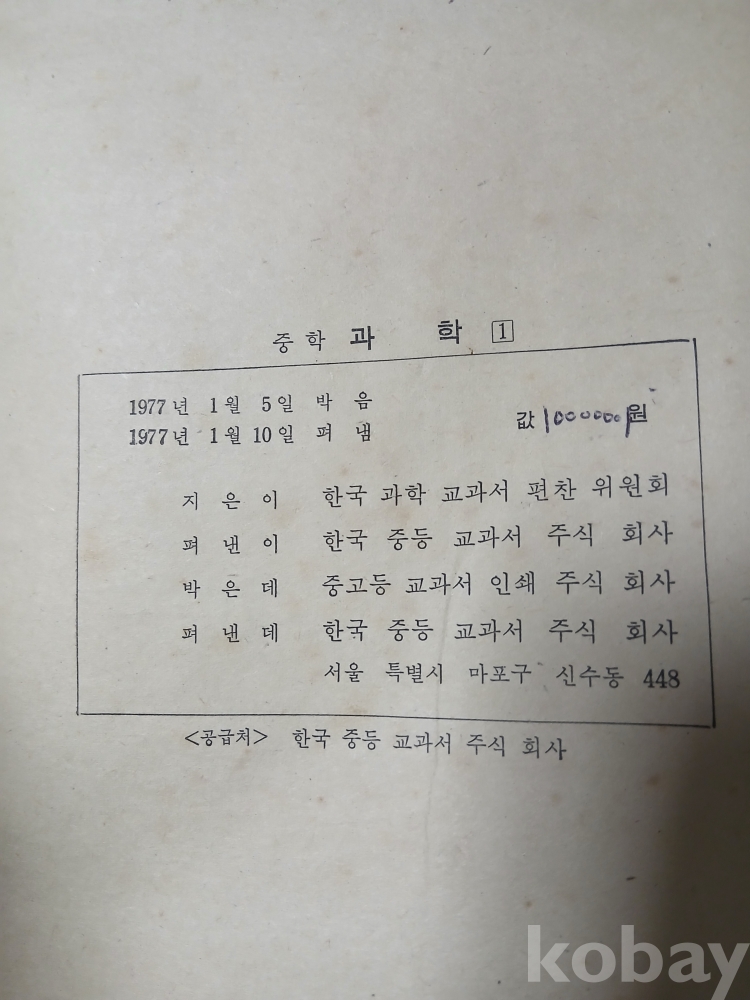 중학 과 학 1
1977년 1월 5일 박 음
1977년 1월 10일 펴 냄
값 원
지 은 이 한국 과학 교과서 편찬 위원회
펴 낸 이 한국 중등 교과서 주식 회사
박 은 데 중고등 교과서 인쇄 주식 회사
펴 낸 데 한국 중등 교과서 주식 회사
서울 특별시 마포구 신수동 448
<공급처> 한국 중등 교과서 주식 회사
kobay